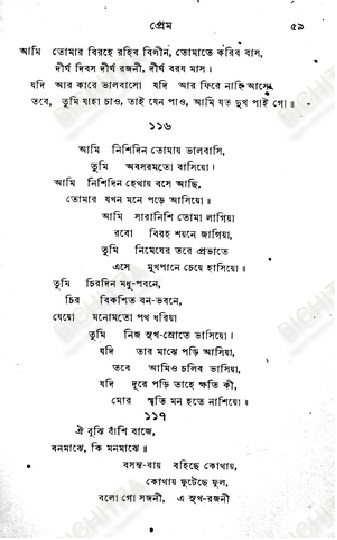 প্রেম ৫৯
আমি তোমার বিরহে রহিব বিলীন, তোমাতে করিব বাস,
দীর্ঘ দিবস দীর্ঘ রজনী, দীর্ঘ বরষ মাস।
যদি আর কারে ভালবাসো যদি আর ফিরে নাহি আসো
তবে, তুমি যাহা চাও, তাই যেন পাও, আমি যত দুখ পাই গো॥
১১৬
আমি নিশিদিন তোমায় ভালবাসি,
তুমি অবসরমতো বাসিয়ো।
আমি নিশিদিন হেথায় বসে আছি,
তোমার যখন মনে পড়ে আসিয়ো॥
আমি সারানিশি তোমা লাগিয়া
রবো বিরহ শয়নে জাগিয়া,
তুমি নিমেষের তরে প্রভাতে
এসে মুখপানে চেয়ে হাসিয়ো॥
তুমি চিরদিন মধু-পবনে,
চির বিকশিত বন-ভবনে,
যেয়ো মনোমতো পথ ধরিয়া
তুমি নিজ সুখ-স্রোতে ভাসিয়ো।
যদি তার মাঝে পড়ি আসিয়া,
তবে আমিও চলিব ভাসিয়া,
যদি দূরে পড়ি তাহে ক্ষতি কী,
মোর স্মৃতি মন হতে নাশিয়ো॥
১১৭
ঐ বুঝি বাঁশি বাজে,
বনমাঝে, কি মনমাঝে॥
বসন্ত-বায় বহিছে কোথায়,
কোথায় ফুটেছে ফুল,
বলো গো সজনী, এ সুখ-রজনী
BICHITRA